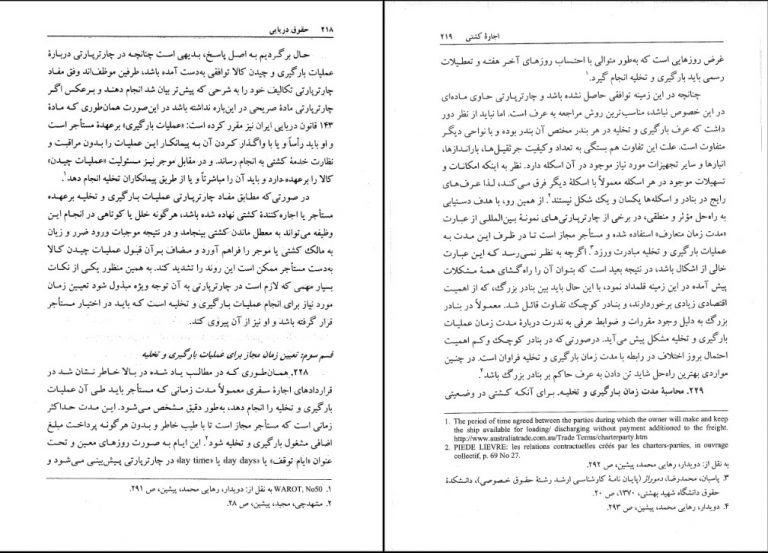 ۲۱۸ حقوق دریایی
حال برگردیم به اصل پاسخ، بدیهی است چنانچه در چارترپارتی دربارهٔ
عملیات بارگیری و چیدن کالا توافقی به‌دست آمده باشد، طرفین موظف‌اند وفق مفاد
چارترپارتی تکالیف خود را به شرحی که پیش‌تر بیان شد انجام دهند و برعکس اگر
چارترپارتی مادهٔ صریحی در این‌باره نداشته باشد در این‌صورت همان‌طوری که مادهٔ
۱۴۳ قانون دریایی ایران نیز مقرر کرده است: «عملیات بارگیری» برعهدهٔ مستأجر است
و او باید رأساً و یا با واگذار کردن آن به پیمانکار این عملیات را بدون مراقبت و
نظارت خدمهٔ کشتی به انجام رساند. و در مقابل موجر نیز مسئولیت «عملیات چیدن»
کالا را برعهده دارد و باید آن را مباشرتاً و یا از طریق پیمانکاران تخلیه انجام دهد۱.
در صورتی‌که مطابق مفاد چارترپارتی عملیات بارگیری و تخلیه برعهده
مستأجر یا اجاره‌کنندهٔ کشتی نهاده شده باشد، هرگونه خلل یا کوتاهی در انجام این
وظیفه می‌تواند به معطل ماندن کشتی بینجامد و در نتیجه موجبات ورود ضرر و زیان
به مالک کشتی یا موجر را فراهم آورد و مضاف برآن قبول عملیات چیدن کالا
به‌دست مستأجر ممکن است این روند را تشدید کند. به همین منظور یکی از نکات
بسیار مهمی که لازم است در چارترپارتی به آن توجه ویژه مبذول شود تعیین زمان
مورد نیاز برای انجام عملیات بارگیری و تخلیه است که باید در اختیار مستأجر
قرار گرفته باشد و او نیز از آن پیروی کند.
قسم سوم: تعیین زمان مجاز برای عملیات بارگیری و تخلیه
۲۲۸. همان‌طوری‌که در مطالب یاد شده در بالا خاطر نشان شد در
قراردادهای اجارهٔ سفری معمولاً مدت زمانی که مستأجر باید طی آن عملیات
بارگیری و تخلیه را انجام دهد، به‌طور دقیق مشخص می‌شود. این مدت حداکثر
زمانی است که مستأجر مجاز است تا با طیب خاطر و بدون هرگونه پرداخت مبلغ
اضافی مشغول بارگیری و تخلیه شود۲. این ایام به صورت روزهای معین و تحت
عنوان «ایام توقف» یا «day days» یا «day time» در چارترپارتی پیش‌بینی می‌شود و
۱. WAROT, No50 به نقل از: دوبدار، رهابی محمد، پیشین، ص ۲۹۱.
۲. مشهدچی، مجید، پیشین، ص ۲۸.
اجارهٔ کشتی ۲۱۹
غرض روزهایی است که به‌طور متوالی با احتساب روزهای آخر هفته و تعطیلات
رسمی باید بارگیری و تخلیه انجام گیرد.۱
چنانچه در این زمینه توافقی حاصل نشده باشد و چارترپارتی حاوی ماده‌ای
در این خصوص نباشد، مناسب‌ترین روش مراجعه به عرف است. اما نباید از نظر دور
داشت که عرف بارگیری و تخلیه در هر بندر مختص آن بندر بوده و با نواحی دیگر
متفاوت است. علت این تفاوت هم بستگی به تعداد وکیفیت جرثقیل‌ها، باراندازها،
انبارها و سایر تجهیزات مورد نیاز موجود در آن اسکله دارد. نظر به اینکه امکانات و
تسهیلات موجود در هر اسکله معمولاً با اسکلهٔ دیگر فرق می‌کند، لذا عرف‌های
رایج در بنادر و اسکله‌ها یکسان و یک شکل نیستند۲. از همین رو، با هدف دستیابی
به راه‌حل مؤثر و منطقی، در برخی از چارترپارتی‌های نمونهٔ بین‌المللی از عبارت
«مدت زمان متعارف» استفاده شده و مستأجر مجاز است تا در ظرف این مدت به
عملیات بارگیری و تخلیه مبادرت ورزد۳. اگرچه به نظر نمی‌رسد که این عبارت
خالی از اشکال باشد، در نتیجه بعید است که بتوان آن را راه‌گشای همهٔ مشکلات
پیش آمده در این زمینه قلمداد نمود، با این حال باید بین بنادر بزرگ، که از اهمیت
اقتصادی زیادی برخوردارند، و بنادر کوچک تفاوت قائل شد. معمولاً در بنادر
بزرگ به دلیل وجود مقررات و ضوابط عرفی به ندرت دربارهٔ مدت زمان عملیات
بارگیری و تخلیه مشکل پیش می‌آید. درصورتی‌که در بنادر کوچک وکم اهمیت
احتمال بروز اختلاف در رابطه با مدت زمان بارگیری و تخلیه فراوان است. در چنین
مواردی بهترین راه‌حل شاید تن دادن به عرف حاکم بر بنادر بزرگ باشد۴.
۲۲۹. محاسبهٔ مدت زمان بارگیری و تخلیه. برای آنکه کشتی در وضعیتی
1. The period of time agreed between the parties during which the owner will make and keep
the ship available for loading/ discharging without payment additioned to the freight.
http://www.australiatrade.com.au/Trade Terms/charterparty.htm
2. PIEDE LIEVRE: les relations contractuelles créés par les charters-parties, in ouvrage
collectif, p. 69 No 27.
به نقل از: دوبدار، رهابی محمد، پیشین، ص ۲۹۲.
۳. پاسبان، محمدرضا، دموراژ (پایان نامهٔ کارشناسی ارشد رشتهٔ حقوق خصوصی)، دانشکدهٔ
حقوق دانشگاه شهید بهشتی، ۱۳۷۰، ص ۲۰.
۴. دوبدار، رهابی محمد، پیشین، ص ۲۹۳.